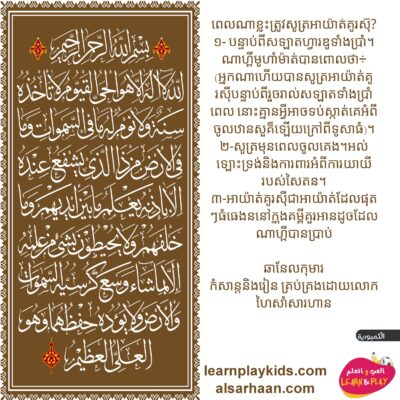 بسم الله الرحمن الرحيم
الله لا إله إلا هو الحي القيوم لا تأخذه
سنة ولا نوم له ما في السموات وما
في الأرض من ذا الذي يشفع عنده
إلا بإذنه يعلم ما بين أيديهم وما
خلفهم ولا يحيطون بشيء من علمه
إلا بما شاء وسع كرسيه السموات
والأرض ولا يؤده حفظهما وهو
العلي العظيم
ពេលណាខ្លះត្រូវសូត្រអាយ៉ាត់គូរស៊ី?
១- បន្ទាប់ពីសឡាតហ្វារឌូទាំងប្រាំ។
ណាហ្ពីមូហាំម៉ាត់បានពោលថា៖
(អ្នកណាហើយបានសូត្រអាយ៉ាត់គូ
រស៊ីបន្ទាប់ពីរួចរាល់សឡាតទាំងប្រាំ
ពេល នោះគ្មានអ្វីអាចទប់ស្កាត់គេអំពី
ចូលឋានសួគ៌ឡើយក្រៅពីទូសាធំ)។
២-សូត្រមុនពេលចូលគេង។អល់
ឡោះទ្រង់និងការពារអំពីការយាយី
របស់សៃតន។
៣-អាយ៉ាត់គូរស៊ីជាអាយ៉ាត់ដែលផុត
ៗធំធេងននៅក្នុងគម្ពីគួរអានដូចដែល
ណាហ្ពីបានប្រាប់
ឆានែលកុមារ
កំសាន្តនិងរៀន គ្រប់គ្រងដោយលោក
ហៃសាំសារហាន
الكمبودية
العب و اتعلم
LEARN & PLAY
learnplaykids.com
alsarhaan.com